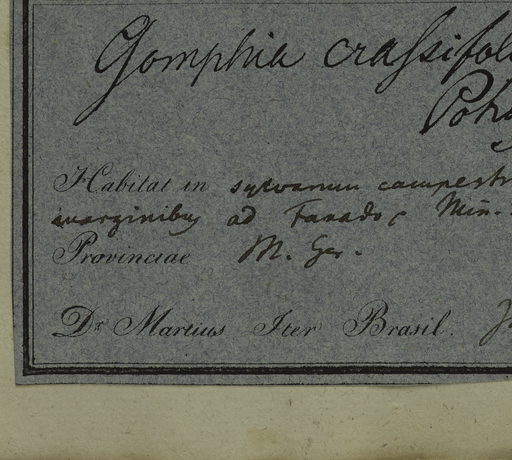 Gomphia crassifol
Poh
Habitat in sylvarum campestr
marginibus ad Fanado, Min.
Provinciae M. Ger.
Dr. Martius Iter Brasil.